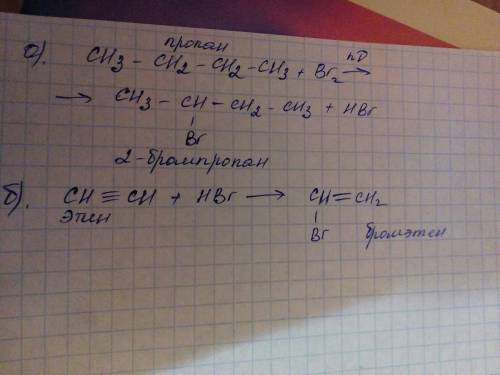 а). пропан
CH3 – CH2 – CH2 – CH3 + Br2 →
→ CH3 – CH – CH2 – CH3 + HBr
Br
2-бромпропан
б). CH ≡ CH + HBr → CH = CH2
этин Br бромэтен